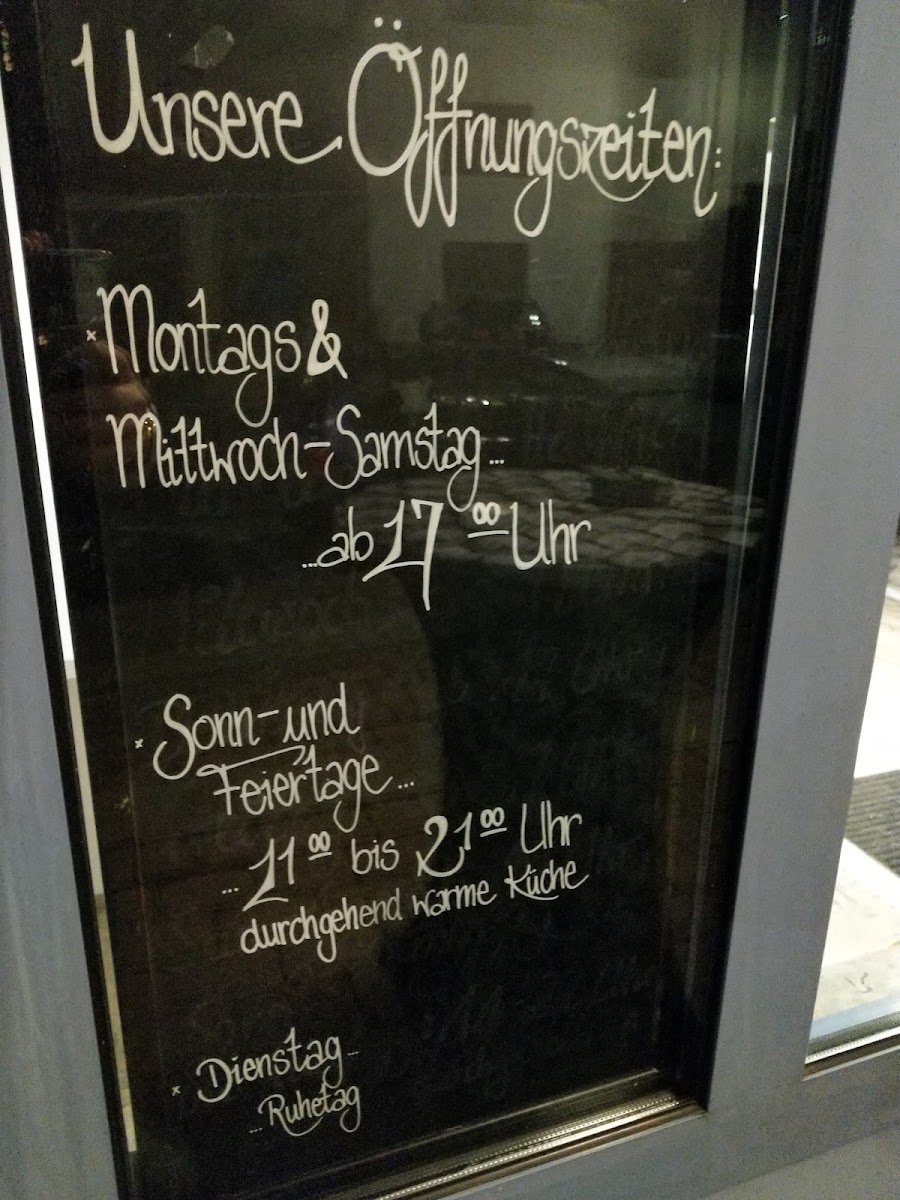 Unsere Öffnungszeiten:
x Montags &
Mittwoch - Samstag...
...ab 17 00 Uhr
x Sonn- und
Feiertage...
... 11 00 bis 21 00 Uhr
durchgehend warme Küche
x Dienstag...
...Ruhetag